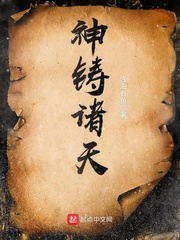 神铸诸天
著
起点中文网